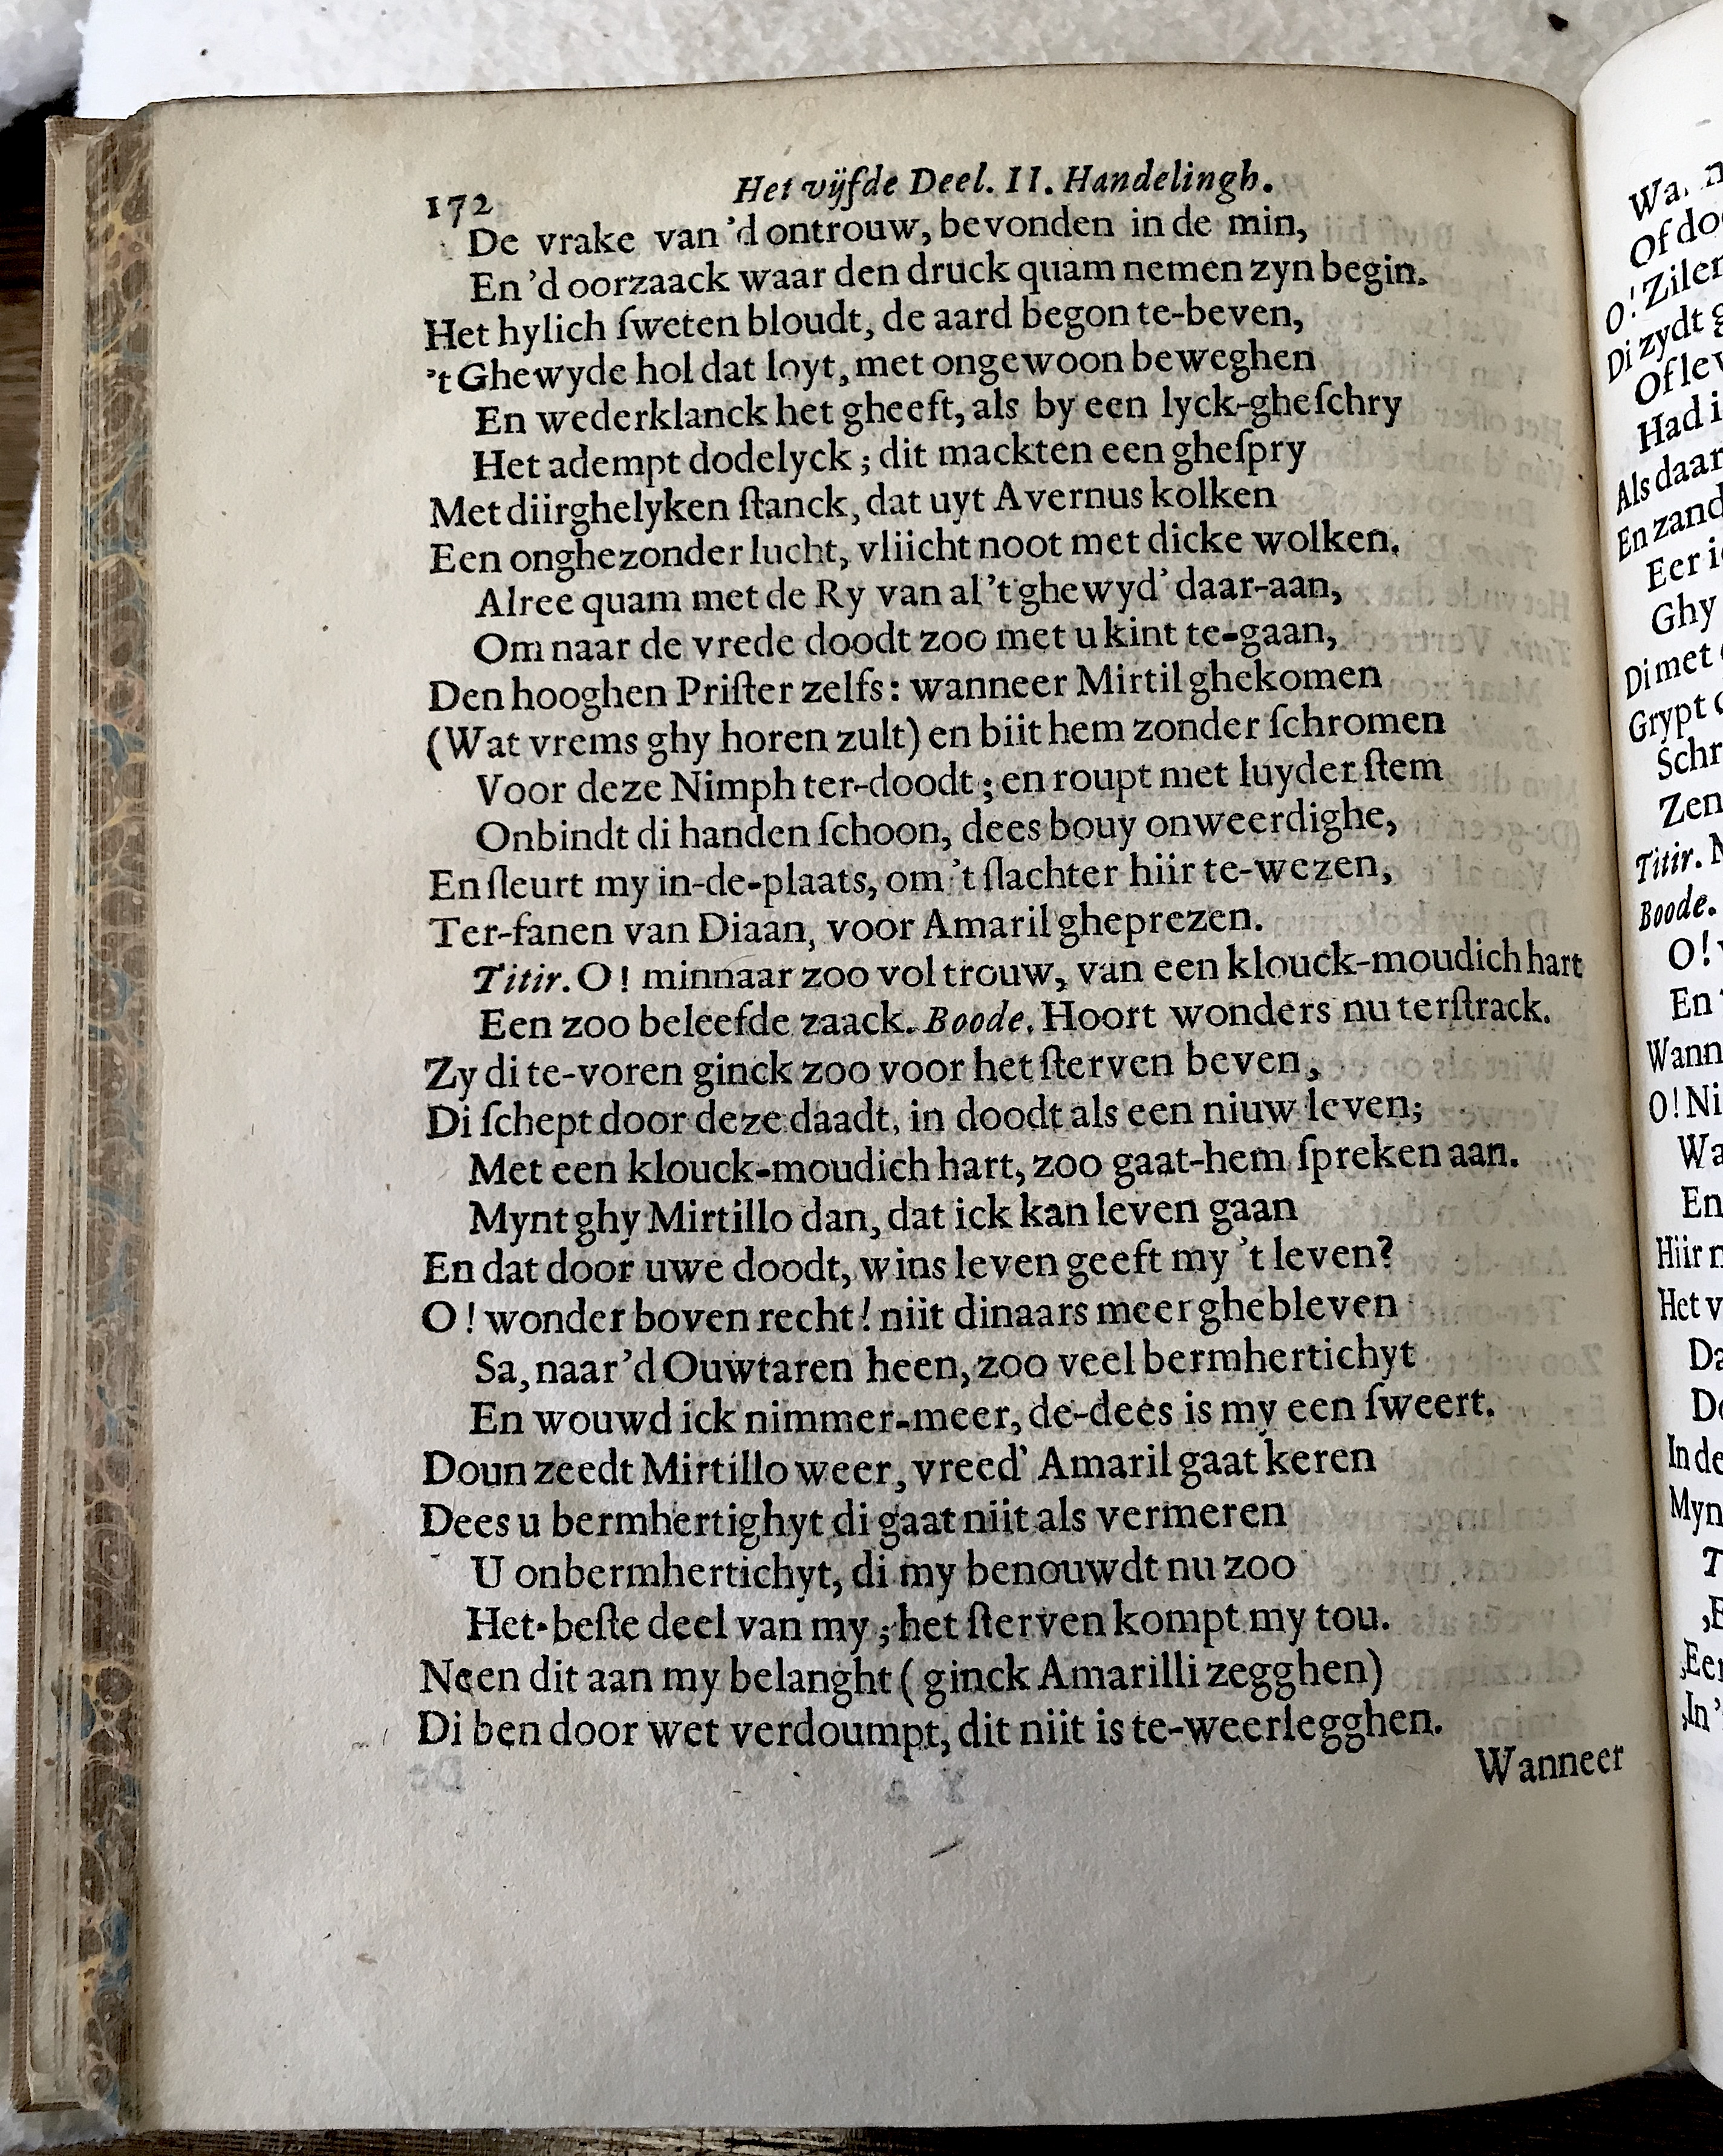 172 Het vijfde Deel. II. Handelingh.
De vrake van 'd ontrouw, bevonden in de min,
En 'd oorzaack waar den druck quam nemen zyn begin.
Het hylich ſweten bloudt, de aard begon te-beven,
't Ghewyde hol dat loyt, met ongewoon beweghen
En wederklanck het gheeft, als by een lyck-gheſchry
Het adempt dodelyck; dit mackten een gheſpry
Met diirghelyken ſtanck, dat uyt Avernus kolken
Een onghezonder lucht, vliicht noot met dicke wolken.
Alree quam met de Ry van al 't ghewyd' daar-aan,
Om naar de vrede doodt zoo met u kint te-gaan,
Den hooghen Priſter zelfs: wanneer Mirtil ghekomen
(Wat vrems ghy horen zult) en biit hem zonder ſchromen
Voor deze Nimph ter-doodt; en roupt met luyder ſtem
Onbindt di handen ſchoon, dees bouy onweerdighe,
En ſleurt my in-de-plaats, om 't ſlachter hiir te-wezen,
Ter-fanen van Diaan, voor Amaril gheprezen.
Titir. O! minnaar zoo vol trouw, van een klouck-moudich hart
Een zoo beleefde zaack. Boode. Hoort wonders nu terſtrack.
Zy di te-voren ginck zoo voor het ſterven beven,
Di ſchept door deze daadt, in doodt als een niuw leven;
Met een klouck-moudich hart, zoo gaat-hem ſpreken aan.
Mynt ghy Mirtillo dan, dat ick kan leven gaan
En dat door uwe doodt, wins leven geeft my 't leven?
O! wonder boven recht! niit dinaars meer ghebleven
Sa, naar 'd Ouwtaren heen, zoo veel bermhertichyt
En wouwd ick nimmer-meer, de-dees is my een ſweert.
Doun zeedt Mirtillo weer, vreed' Amaril gaat keren
Dees u bermhertighyt di gaat niit als vermeren
U onbermhertichyt, di my benouwdt nu zoo
Het-beſte deel van my; het ſterven kompt my tou.
Neen dit aan my belanght (ginck Amarilli zegghen)
Di ben door wet verdoumpt, dit niit is te-weerlegghen.
Wanneer
Of do
O! Zilen
Di zydt g
Of lev
Had i
Als daar
En zand
Eer i
Ghy
Di met
Grypt
Schr
Zen
Titir.
Boode.
O!
En
Wann
O! Ni
Wa
En
Hiir
Het v
Da
Do
In de
Myn